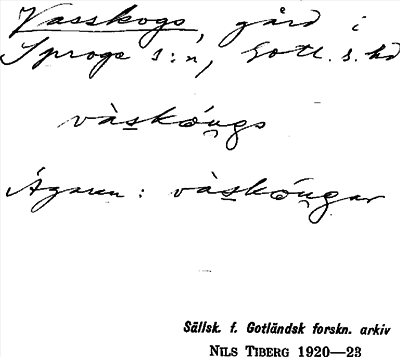 Vasskogs, gård i
Sproge s:n, Gotl. s. hd
vàskóu̯gs
Ägaren : vàskóu̯gar
Sällsk. f. Gotländsk forskn. arkiv
NILS TIBERG 1920—23